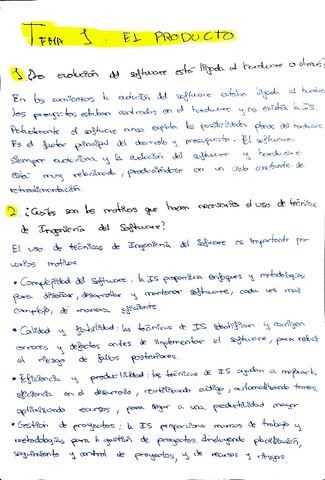 TEMA 1: EL PRODUCTO
1. ¿La evolución del software está ligada al hardware o otros?
En los comienzos la evolución del software estaba ligada al hardware
los proyectos estaban centrados en el hardware y no existía la IS.
Actualmente el software nunca explota las posibilidades plenas del hardware.
Es el factor principal del desarrollo y presupuesto. El software
siempre evoluciona y la evolución del software y hardware
está muy relacionada, produciéndose en un ciclo constante de
retroalimentación.
2. ¿Cuáles son los motivos que hacen necesario el uso de técnicas
de Ingeniería del Software?
El uso de técnicas de Ingeniería del Software es importante por
varios motivos
• Complejidad del Software: la IS proporciona enfoques y metodologías
para diseñar, desarrollar y mantener software, cada vez más
complejo, de manera eficiente.
• Calidad y fiabilidad: las técnicas de IS identifican y corrigen
errores y defectos antes de implementar el software, para reducir
el riesgo de fallos posteriores.
• Eficiencia y productividad: las técnicas de IS ayudan a mejorar la
eficiencia en el desarrollo, reutilizando código, automatizando tareas,
optimizando recursos, para llegar a una productividad mayor.
• Gestión de proyectos: la IS proporciona marcos de trabajo y
metodologías para la gestión de proyectos incluyendo planificación,
seguimiento y control de proyectos, y de recursos y riesgos.